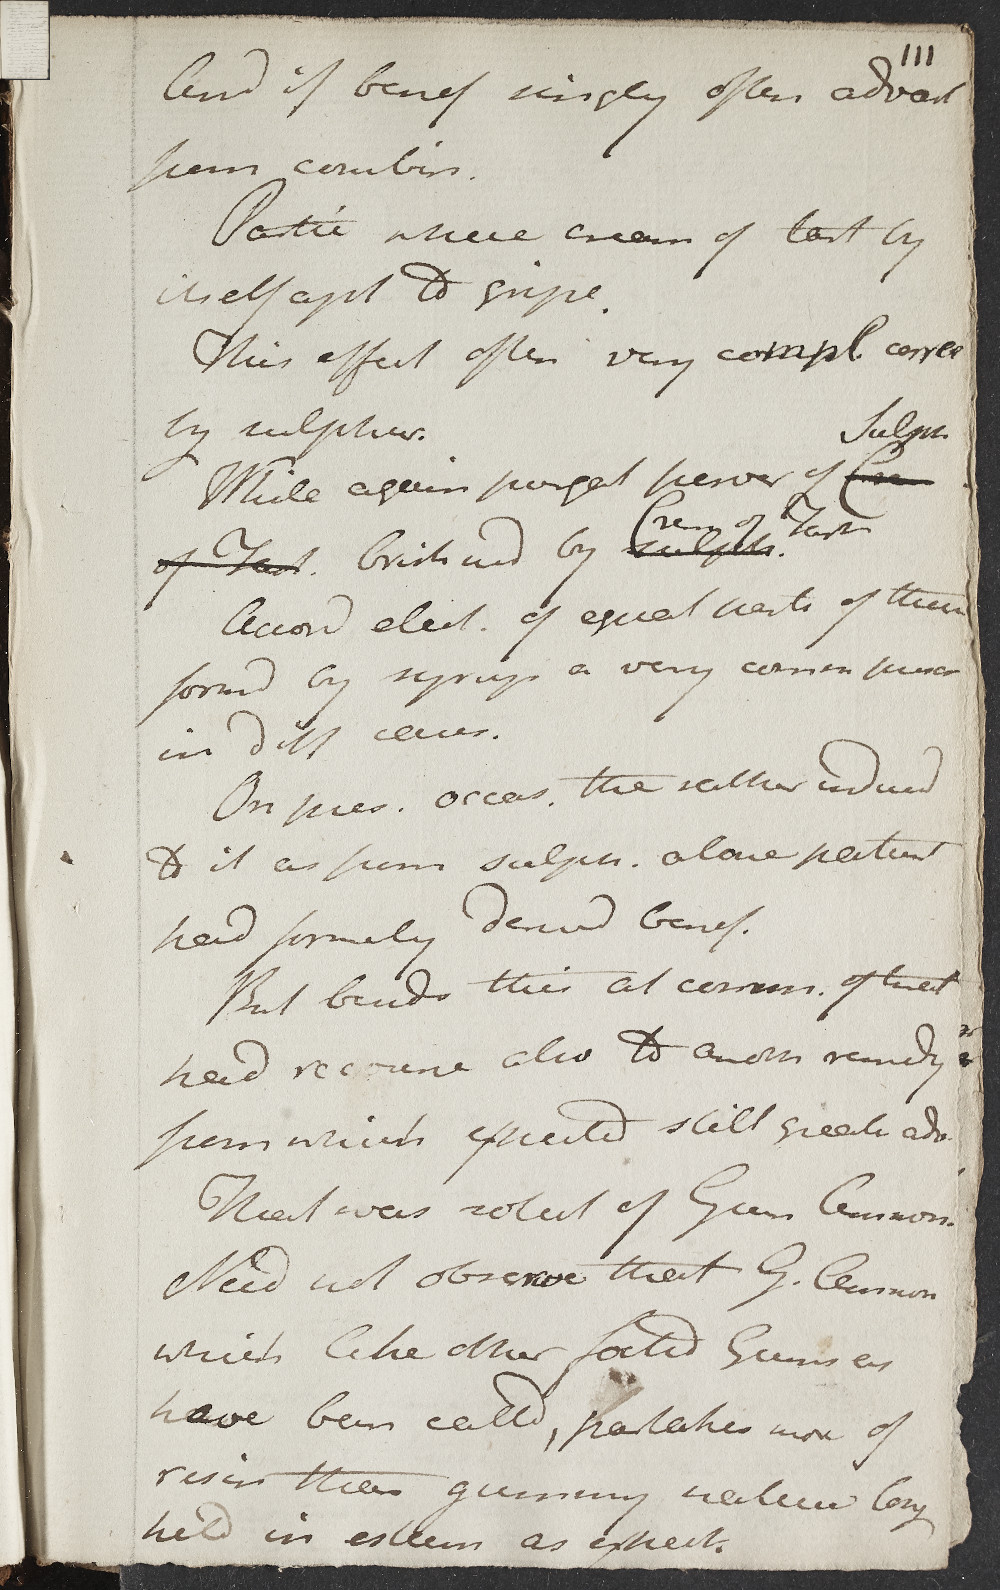 111
And if benef singly often advant
from combin.
Partic where cream of tart by
itself apt to gripe.
This effect often very compl. corre
by sulphur.
Sulph
While again purgat power of Cre
Crem of Tart
of Tart. brisk und by sulph.
Accord elect. of equal parts of them
formd by syrup a very common
in diff cases.
On pres. occas. the rather inducd
to it as from sulph. alone patient
had formerly derivd benef.
But besids this at comm. of treat
had recourse also to anoth remedy
from which expected still greater adv.
That was solut of Gum Ammon.
Need not observe that G. Ammon
which like other foetid Gums as
have been calld, partakes more of
resin than gummy nature long
held in esteem as expect.